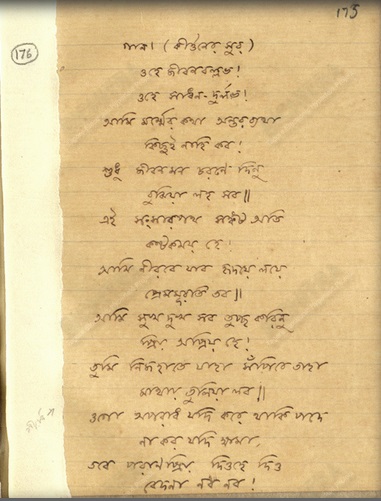 175
176
গান। (কীর্ত্তনের সুর)
ওহে জীবনবল্লভ!
ওহে সাধন-দুর্লভ!
আমি মর্ম্মের কথা অন্তরব্যথা
কিছুই নাহি কব!
শুধু জীবন মন চরণে দিনু
বুঝিয়া লহ সব॥
এই সংসারপথ সঙ্কট অতি
কণ্টকময় হে!
আমি নীরবে যাব হৃদয়ে লয়ে
প্রেমমূরতি তব॥
আমি সুখ দুখ সব তুচ্ছ করিনু
প্রিয় অপ্রিয় হে!
তুমি নিজ হাতে যাহা সঁপিবে তাহা
মাথায় তুলিয়া লব॥
ওগো অপরাধ যদি করে থাকি পদে
না কর যদি ক্ষমা,
তবে পরাণপ্রিয়, দিওহে দিও
বেদনা নব নব!